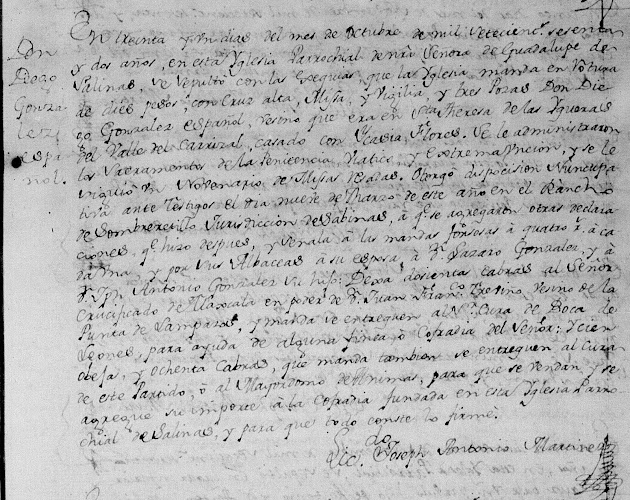 Dn
Diego
Gonza-
lez
espa-
ñol.
En treinta y un dias del mes de Octubre de mil setecienos. sesenta
y dos años, en esta Yglesia Parrochial de nrâ Señora de Guadalupe de
Salinas, se sepultò con las exequias, que la Yglesia manda en sepultura
de diez pesos, con Cruz alta, Misa, y Vigilia y tres Pozas Don Die-
go Gonzalez español, vesino que era en Sta Theresa de las Ygueras
del Valle del Carrizal, casado con Ycasia Flores. Se le administraron
los Sacramentos de la Penitencia, Viatico, y Extremauncion, y se le
un Novenario de Misas resadas. Otorgò disposicion Nuncupa-
tiva ante Testigos el dia nueve de Marzo de este año en el Rancho
de Sombreretillo Jurisdiccion de Sabinas, à qe. se agregaron otras declara-
ciones qe. hizo despues, y señala à las mandas forsosas à quatro rs. à ca-
da una y por sus Albaceas à su esposa à Dn. Lazaro Gonzalez, y à
Dn. Jph Antonio Gonzalez su hijo: Dexa docientas cabras al Señor
Crucificado de Tlaxcala en poder de Dn. Juan Franco. Treviño vesino de la
Punta de Lampazos, y manda se entreguen al Sr. Cura de Boca de
Leones, para ayuda de alguna finca, ò Cofradia del Señor: Ytt cien
obejas, y ochenta Cabras, que manda tambien se entreguen al Cura
de este Partido, ò al Mayordomo de Animas, para que se vendan, y se
agregue su importe à la cofradia fundada en esta Yglesia Parro-
chial de Salinas, y para que todo conste lo firmè.
Lic.do Joseph Antonio Martinez